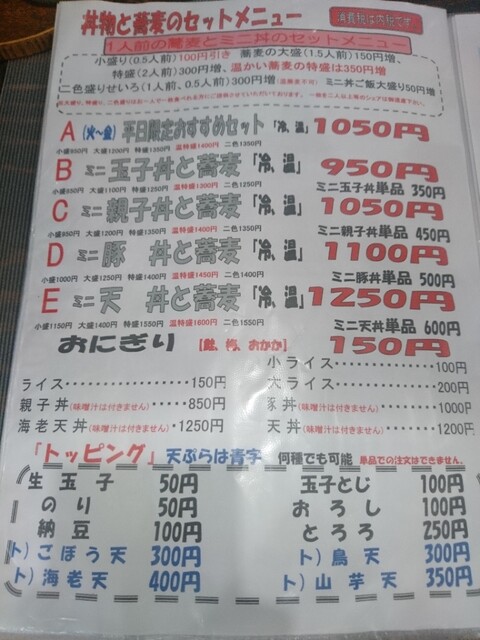 丼物と蕎麦のセットメニュー
消費税は内税です。
1人前の蕎麦とミニ丼のセットメニュー
小盛り(0.5人前)100円引き 蕎麦の大盛(1.5人前)150円増、
特盛(2人前)300円増、温かい蕎麦の特盛は350円増
二色盛りせいろ(1.5人前)300円増(温蕎麦不可) ミニ丼ご飯大盛り50円増
A (火~金) 平日限定おすすめセット「冷、温」 1050円
小盛950円 大盛1200円 特盛1350円 温特盛1400円 二色1350円
B ミニ 玉子丼と蕎麦「冷、温」 950円
小盛850円 大盛1100円 特盛1250円 温特盛1300円 二色1250円
ミニ玉子丼単品 350円
C ミニ 親子丼と蕎麦「冷、温」 1050円
小盛950円 大盛1200円 特盛1350円 温特盛1400円 二色1350円
ミニ親子丼単品 450円
D ミニ 豚 丼と蕎麦「冷、温」 1100円
小盛1000円 大盛1250円 特盛1400円 温特盛1450円 二色1400円
ミニ豚丼単品 500円
E ミニ 天 丼と蕎麦「冷、温」 1250円
小盛1150円 大盛1400円 特盛1550円 温特盛1600円 二色1550円
ミニ天丼単品 600円
おにぎり 【鮭、梅、おかか】 150円
小ライス・・・・・・・・・・・・・・100円
ライス・・・・・・・・・・・・・・・150円
大ライス・・・・・・・・・・・・・・200円
親子丼(味噌汁は付きません)・・・・・850円
豚丼(味噌汁は付きません)・・・・・・・1000円
海老天丼(味噌汁は付きません)・1250円
天丼(味噌汁は付きません)・・・・・・1200円
「トッピング」 天ぷらは青字 何種でも可能 単品での注文はできません。
生玉子 50円
玉子とじ 100円
のり 50円
おろし 100円
納豆 100円
とろろ 250円
ト)ごぼう天 300円
ト)鳥天 300円
ト)海老天 400円
ト)山芋天 350円